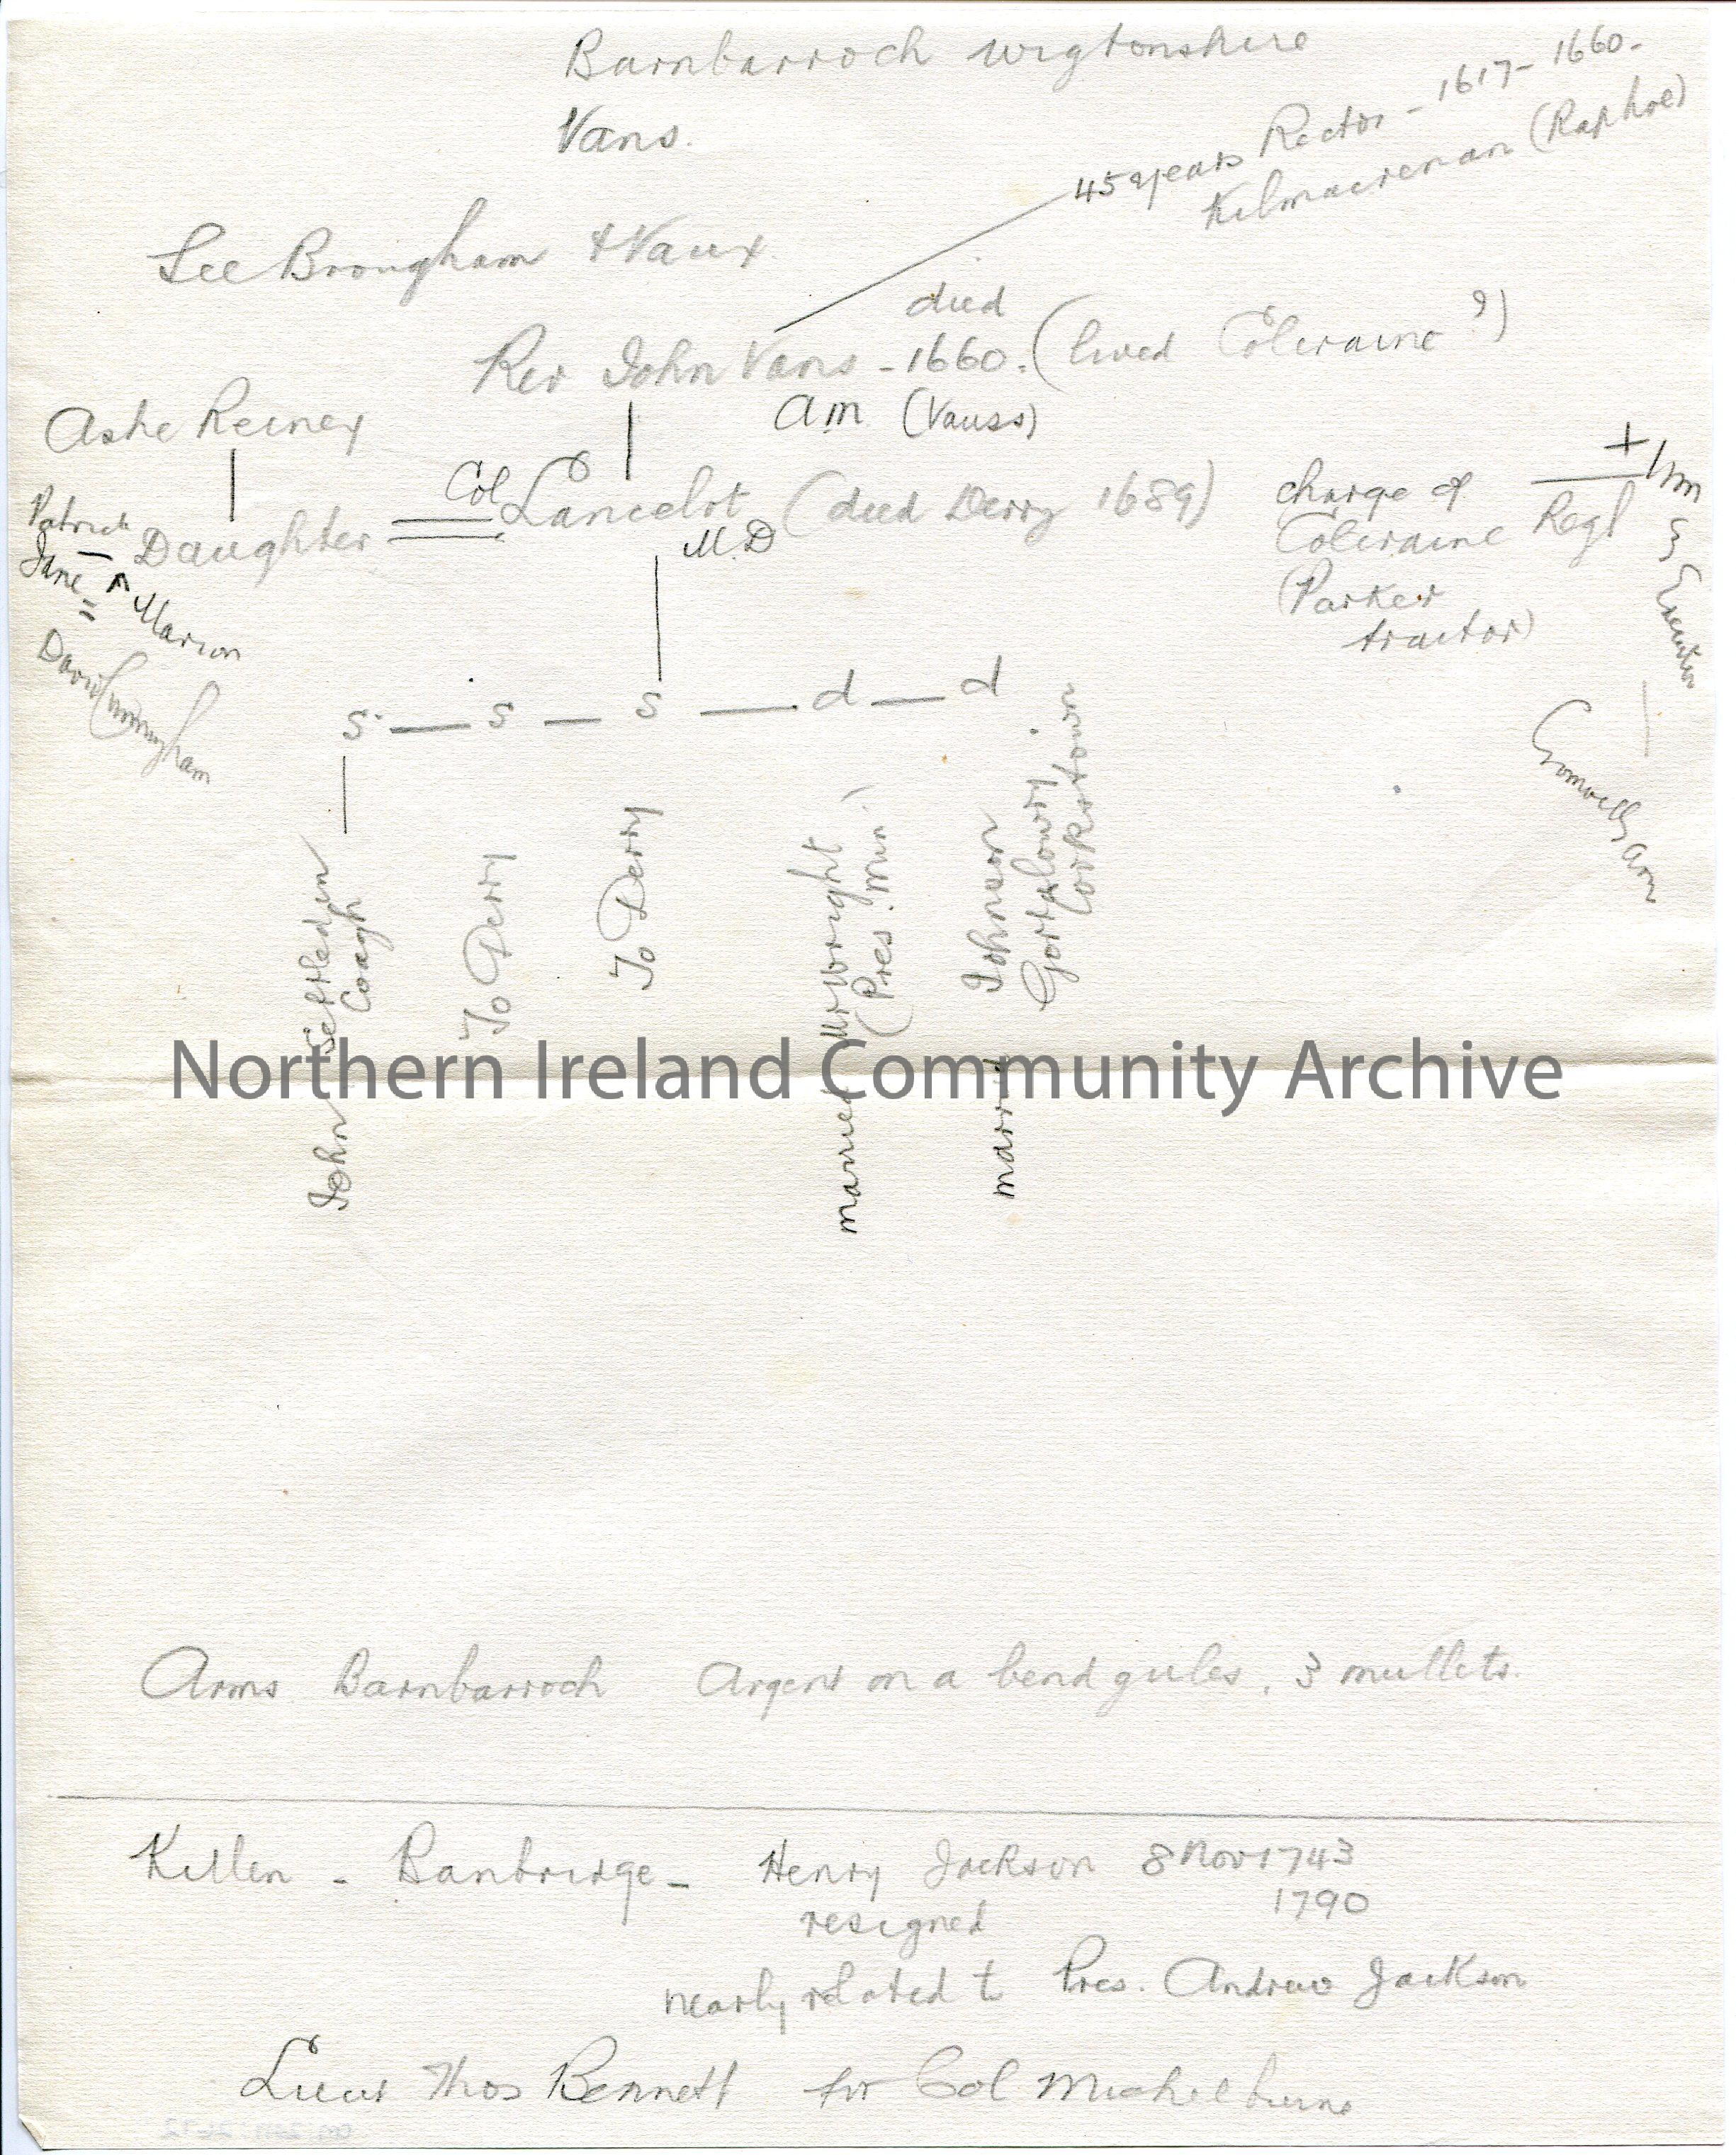 Barnbarroch Wigtonshire
Vans.
45 years Rector - 1617 - 1660.
Kilmacrenan (Raphoe)
See Brougham & Vaux
died
Rev John Vans - 1660. (lived Coleraine ?)
am (Vauss)
Ashe Reiney
Patrick
Jane = Marion
David Cunningham
Daughter
Col Lancelot (died Derry 1689)
M.D
charge of
Coleraine Regt
(Parker
traitor)
+ Im
Executor
Cromwells arm
s — s — s — d — d
John Settled in
Coagh
To Derry
To Derry
married Mr Wright
(Pres. Min.)
married Johnson
Gortalowry
Cookstown
Northern Ireland Community Archive
Arms Barnbarroch Argent on a bend gules, 3 mullets.
Killen - Banbridge - Henry Jackson 8 Nov 1743
resigned 1790
nearly related to Pres. Andrew Jackson
Lieut Thos Bennett for Col Michelburne